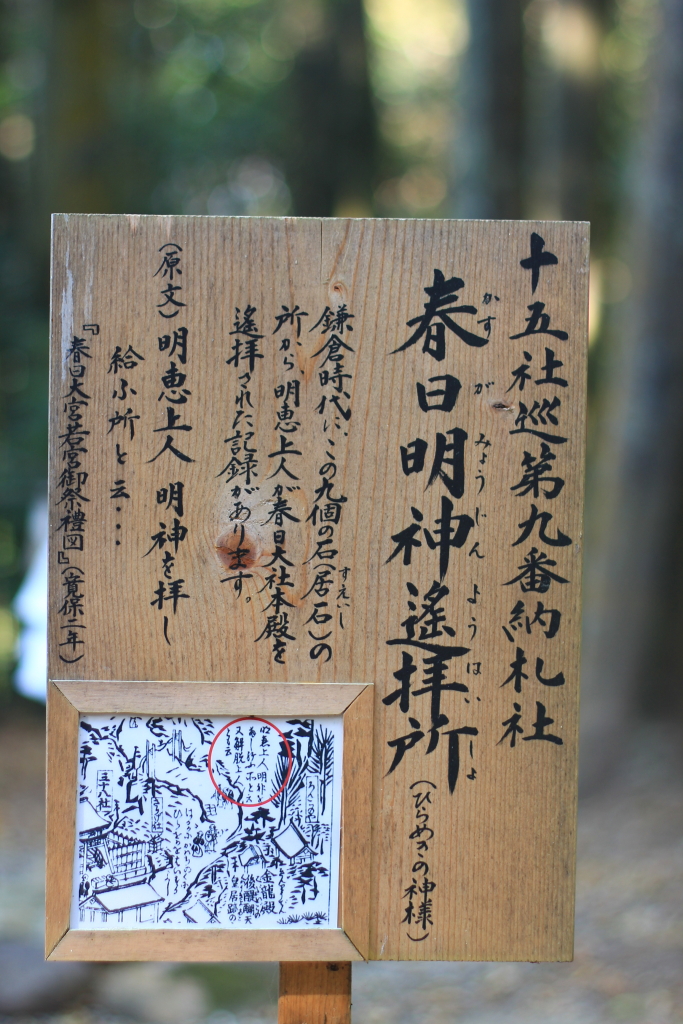 十五社巡第九番納札社
春日明神遥拝所
かすが みょうじん ようはいしょ
(ひらめきの神様)
鎌倉時代に、この九個の石(居石)の
すえいし
所から明恵上人が春日大社本殿を
遥拝された記録があります。
(原文)明恵上人 明神を拝し
給ふ所と云・・・
『春日大宮若宮御祭禮図』(寛保二年)
明恵上人 明神
三十八社
金龍殿
後醍醐天
皇居跡